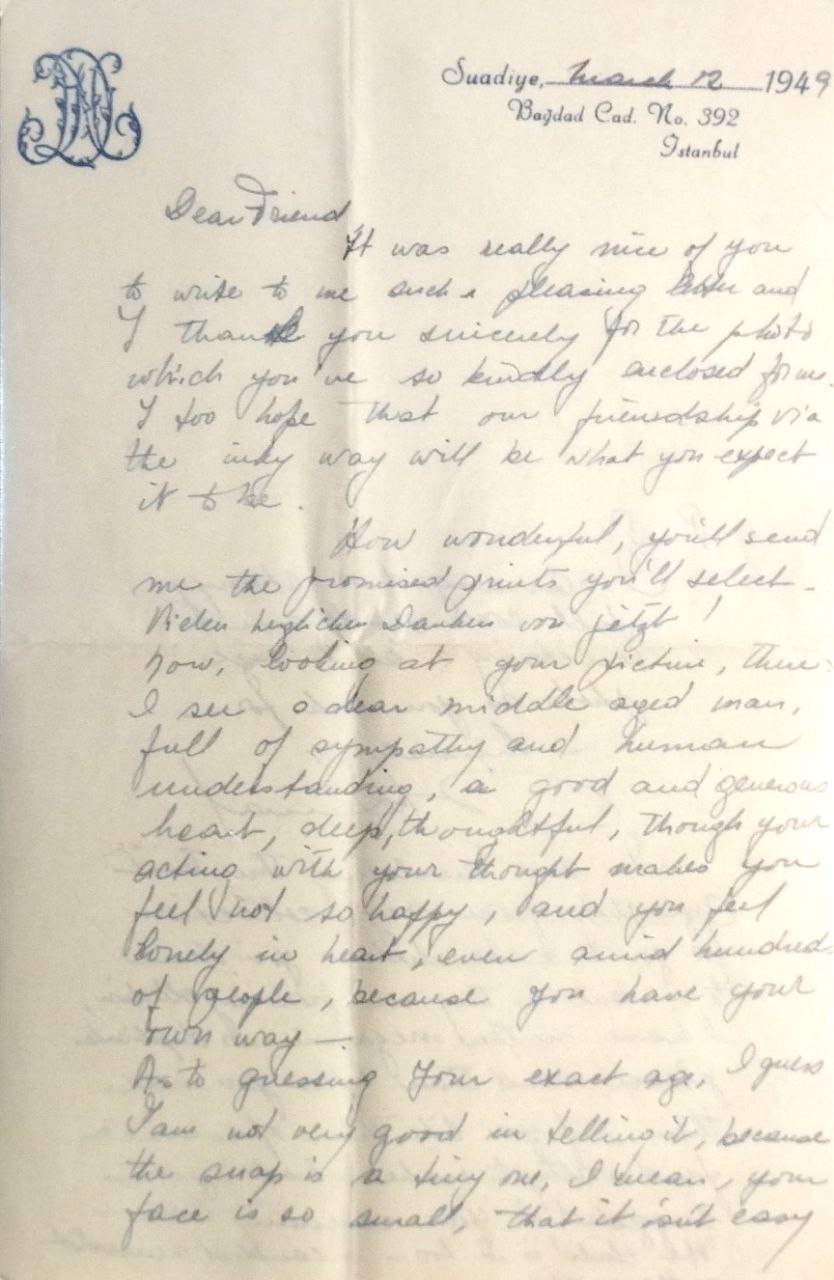 Suadiye, March 12 1949
Bağdad Cad. No. 392
İstanbul
Dear Friend
It was really nice of you
to write to me such a pleasing letter and
I thank you sincerely for the photo
which you've so kindly enclosed for me.
I too hope that our friendship via
the inky way will be what you expect
it to be.
How wonderful, you'll send
me the promised prints you'll select –
Vielen herzlichen Danken von jetzt!
Now, looking at your picture, there
I see a dear middle aged man,
full of sympathy and human
understanding, a good and generous
heart, deep, thoughtful, though your
acting with your thought makes you
feel not so happy, and you feel
lonely in heart, even amid hundred
of people, because you have your
own way —
As to guessing your exact age, I guess
I am not very good in telling it, because
the snap is a tiny one, I mean, your
face is so small, that it isn't easy